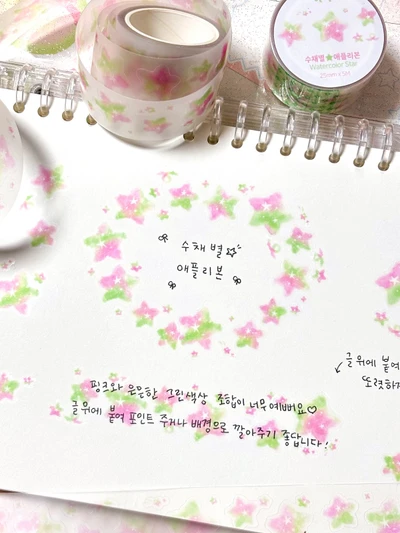 수채별☆애플리본
Watercolor Star
25mm x 5m
수채별☆
애플리본
글위에 붙여
또렷하게
핑크와 은은한 그린색상 조합이 너무예뻐요♡
글위에 붙여 포인트 주거나 배경으로 깔아주기 좋답니다!